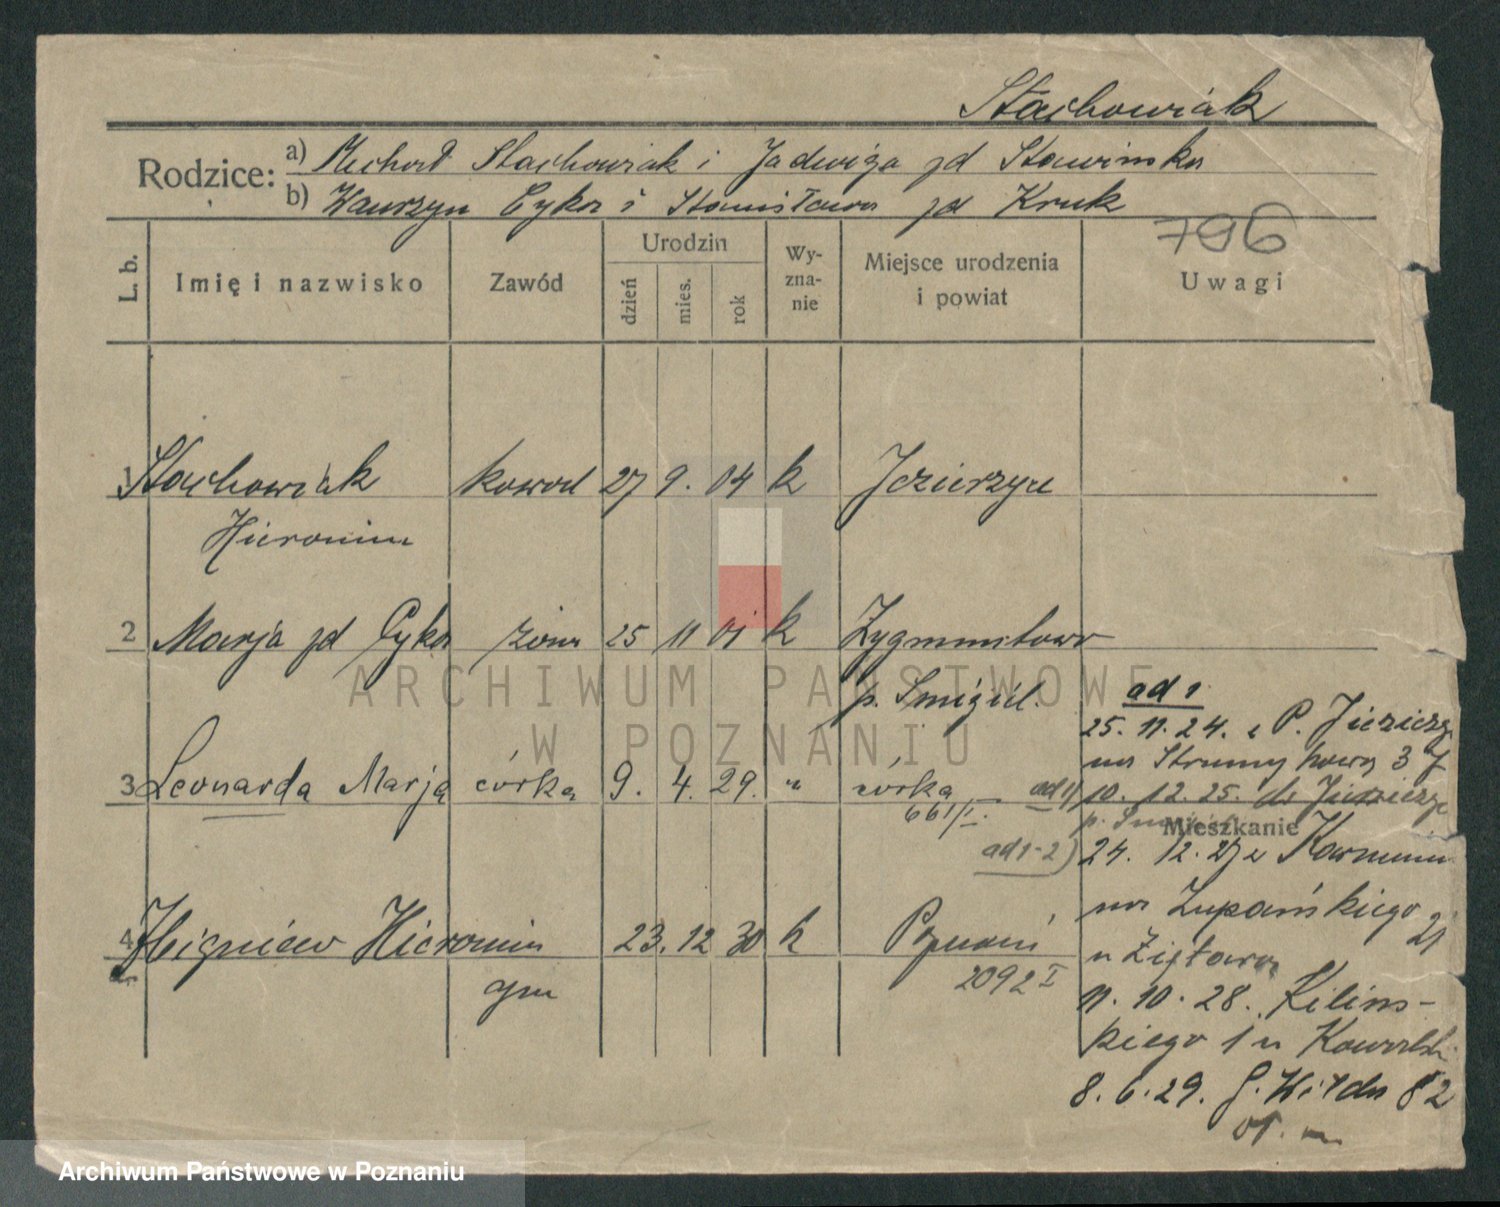 Stachowiak
Rodzice: a) Michał Stachowiak i Jadwiga zd Stawinska
b) Wawrzyn Cyka i Stanisława zd Kruk
796
L. b. Imię i nazwisko Zawód Urodzin dzień mies. rok Wy-zna-nie Miejsce urodzenia i powiat Uwagi
1 Stachowiak kowal 27 9. 04 k Jezierzyce
Hieronim
2 Marja zd Cyka żona 25 11 01 k Zygmuntowo
p. Śmigiel.
ad 1
25. 11. 24. z P. Jezierzy
na Strumykowa 37
3 Leonarda Marja córka 9. 4. 29. " córka ad 1) 10. 12. 25. do Jezierzyc
661/I.
p. Śmigiel
Mieszkanie
ad 1-2) 24. 12. 27 z Karmin
na Żupańskiego 21
4 Zbigniew Hieronim 23. 12 30 k Poznań
u Ziętara
syn 2092 I
11. 10. 28. Kilińs-
kiego 1 u Kowalsk
8. 6. 29. G. Wilda 82
ARCHIWUM PAŃSTWOWE
W POZNANIU
Archiwum Państwowe w Poznaniu